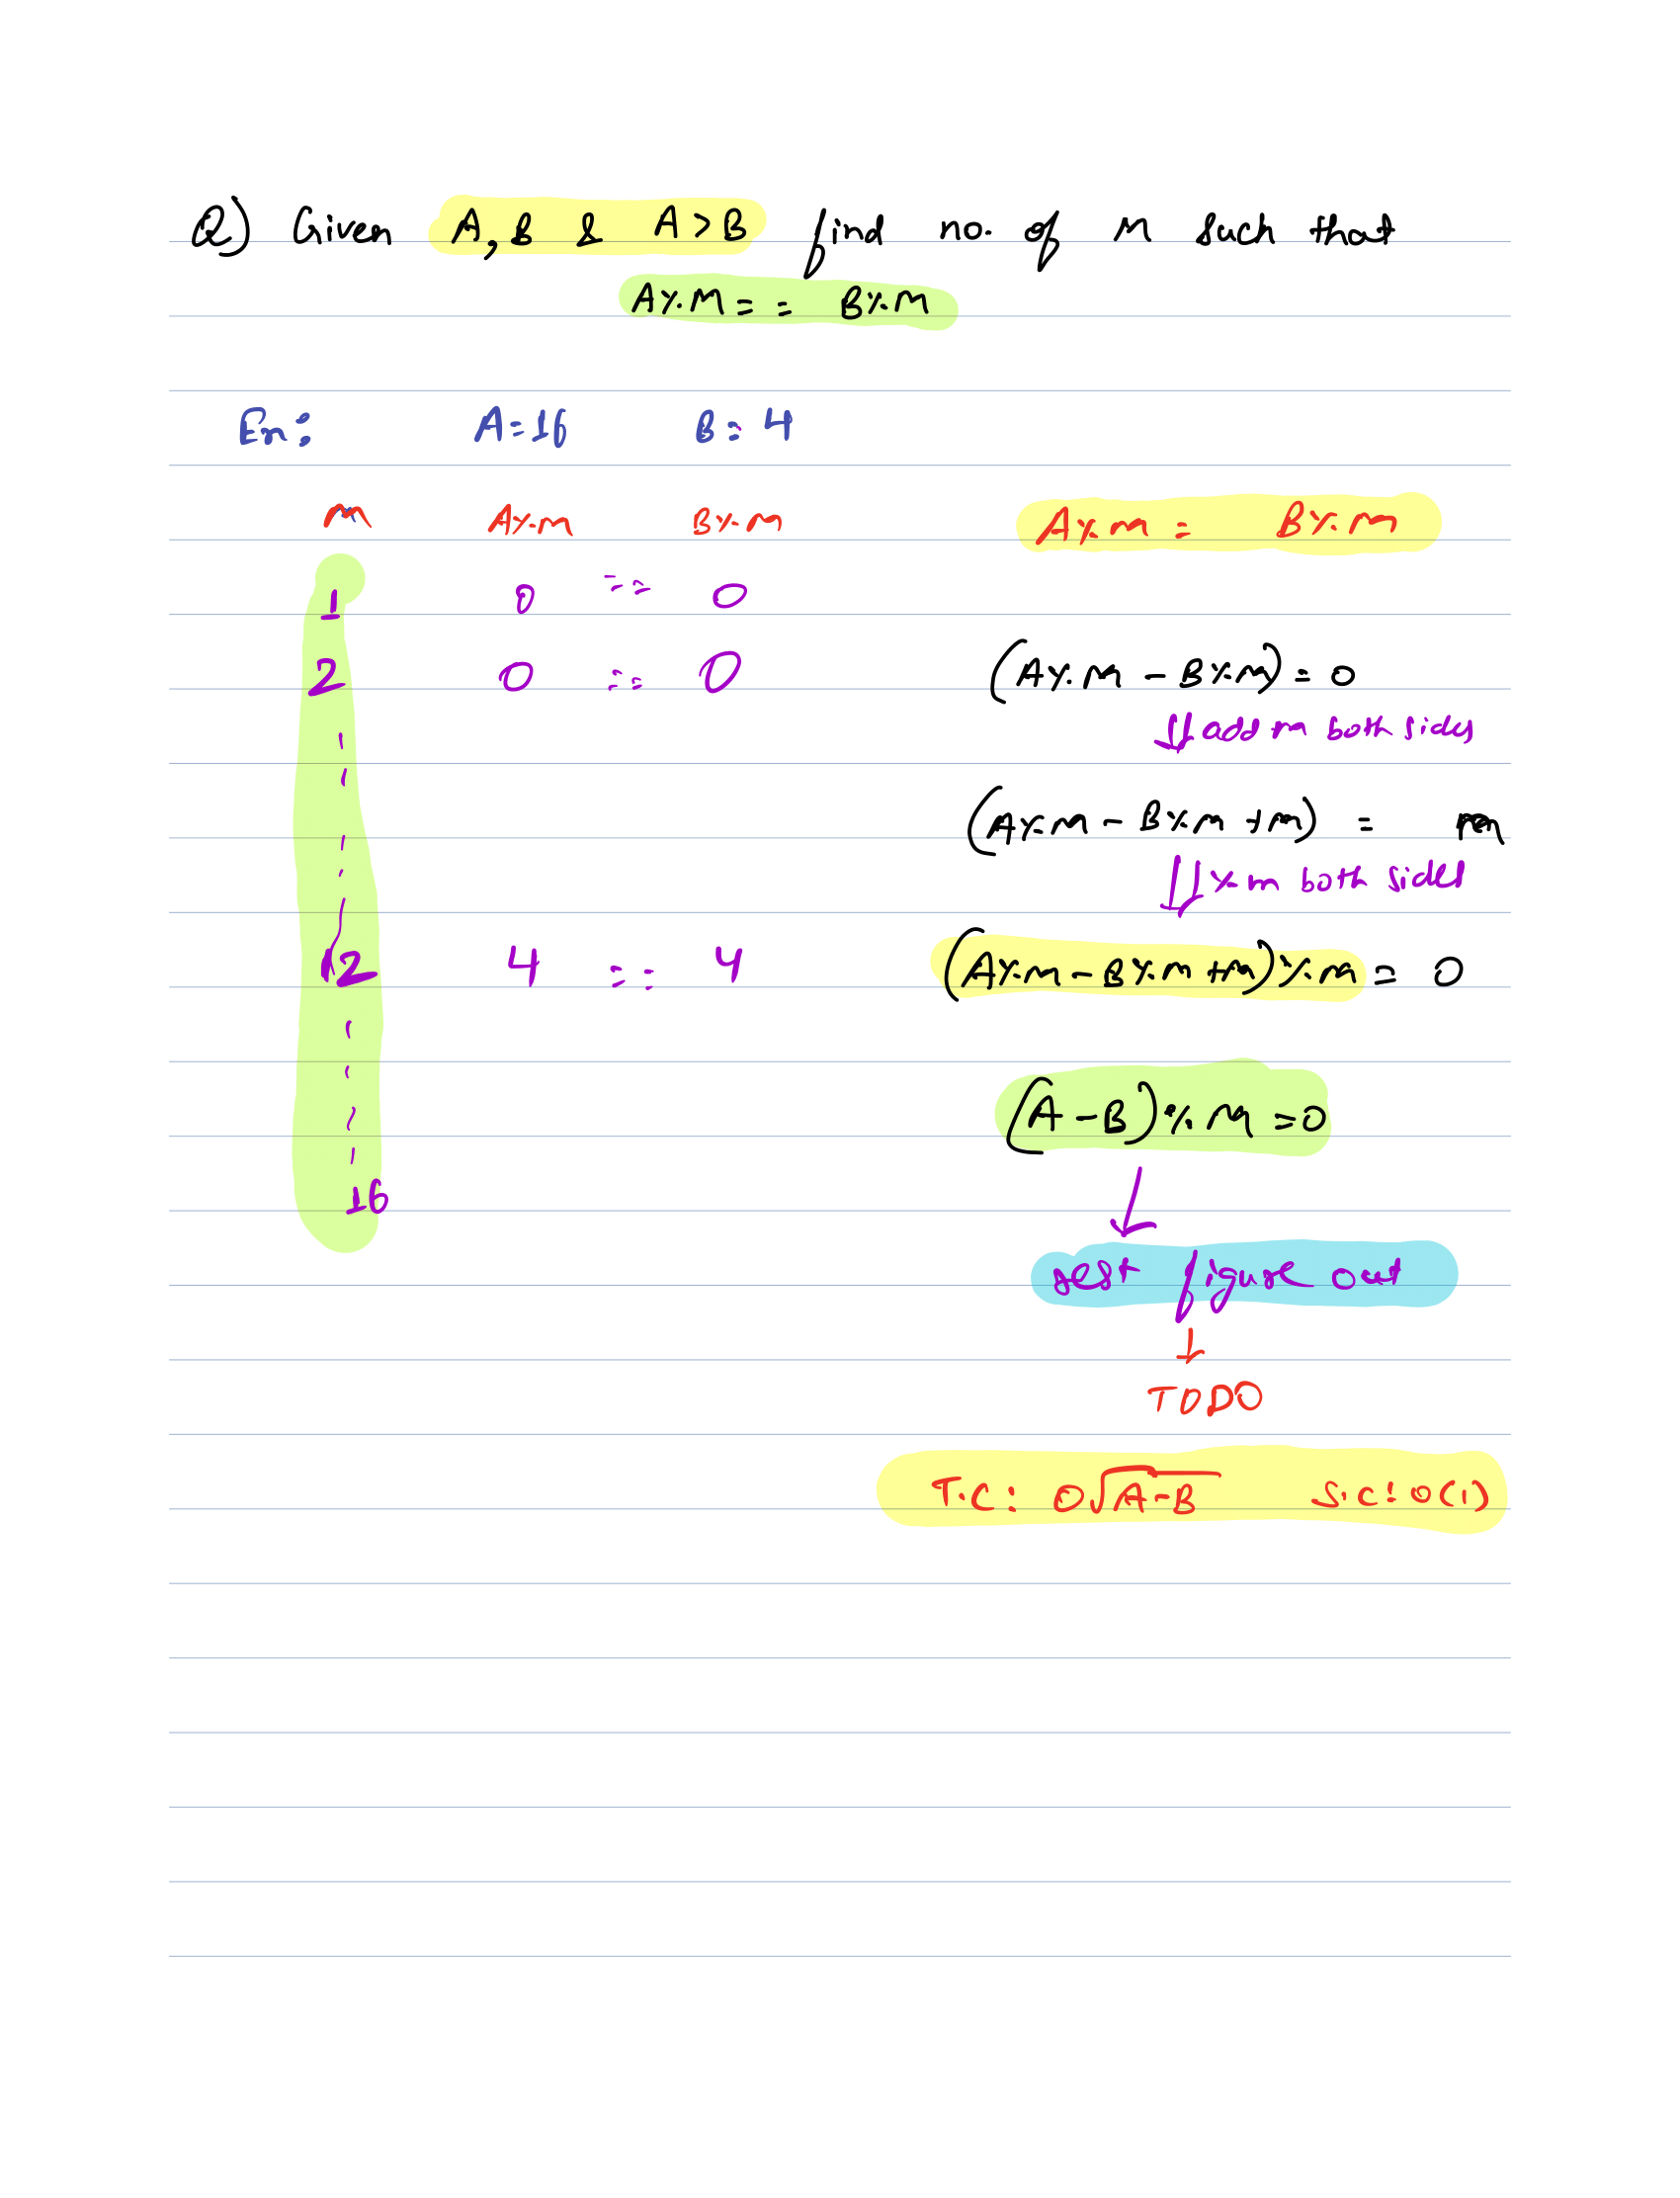 Q) Given A, B & A > B find no. of M such that
A % M = = B % M
Ex: A = 16 B = 4
m A % m B % m A % m = B % m
1 0 == 0
2 0 == 0 (A % m - B % m) = 0
⇓ add m both sides
(A % m - B % m + m) = m
⇓ % m both sides
12 4 == 4 (A % m - B % m + m) % m = 0
(A - B) % M = 0
16
↓
rest figure out
↓
TODO
T.C: O√A-B S.C: O(1)